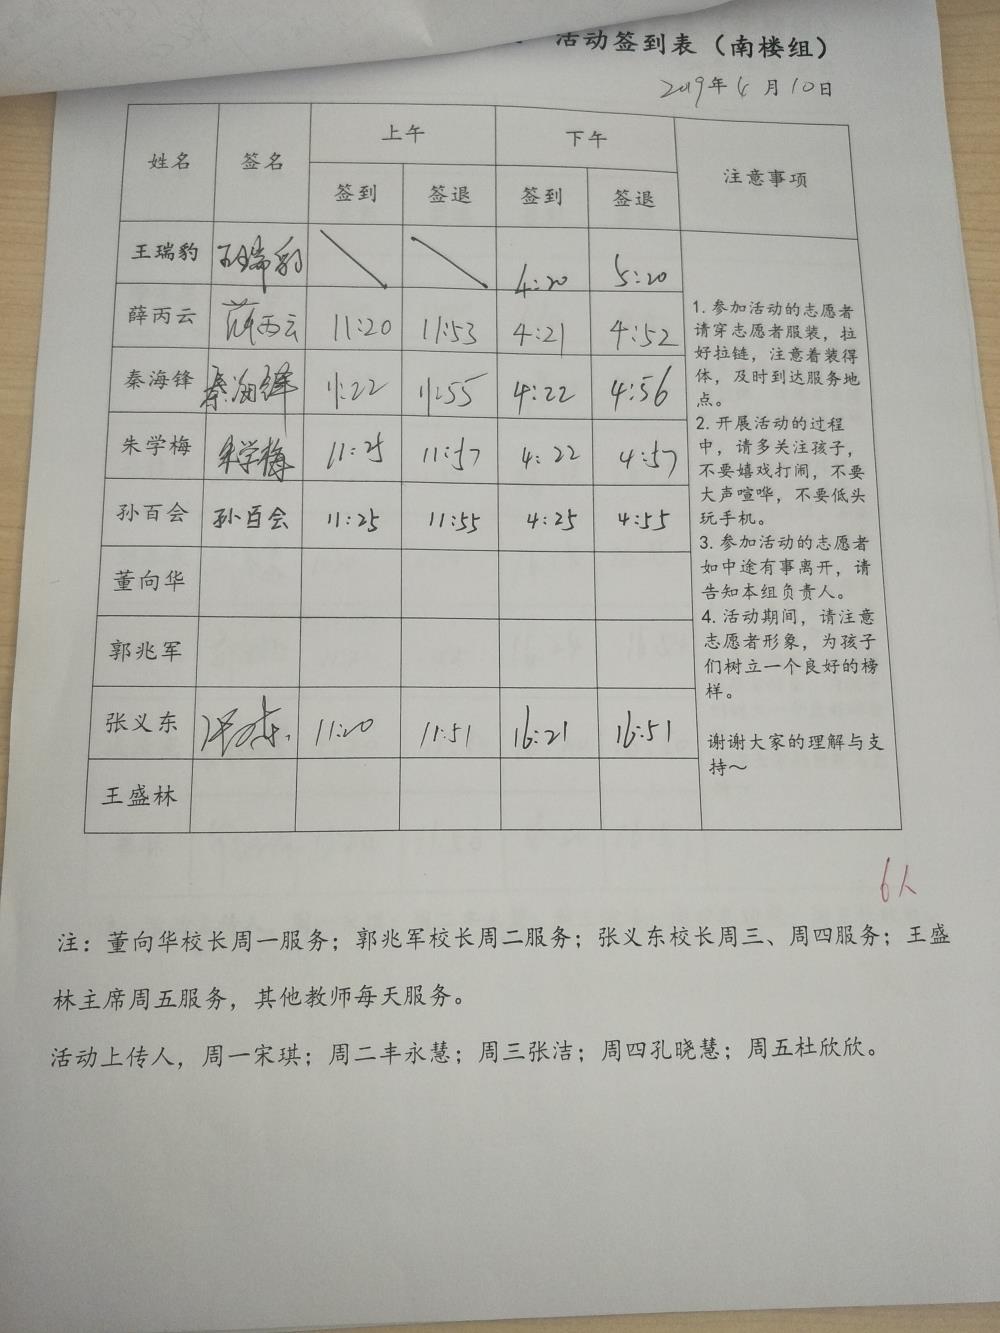 活动签到表（南楼组）
2019年4月10日
姓名 签名 上午 下午 注意事项
签到 签退 签到 签退
王瑞豹 王瑞豹 4:20 5:20
薛丙云 薛丙云 11:20 11:53 4:21 4:52
秦海锋 秦海锋 11:22 11:55 4:22 4:56
朱学梅 朱学梅 11:25 11:57 4:22 4:57
孙百会 孙百会 11:25 11:55 4:25 4:55
董向华
郭兆军
张义东 张义东 11:20 11:51 16:21 16:51
王盛林
1. 参加活动的志愿者
请穿志愿者服装，拉
好拉链，注意着装得
体，及时到达服务地
点。
2. 开展活动的过程
中，请多关注孩子，
不要嬉戏打闹，不要
大声喧哗，不要低头
玩手机。
3. 参加活动的志愿者
如中途有事离开，请
告知本组负责人。
4. 活动期间，请注意
志愿者形象，为孩子
们树立一个良好的榜
样。
谢谢大家的理解与支
持～
6人
注：董向华校长周一服务；郭兆军校长周二服务；张义东校长周三、周四服务；王盛
林主席周五服务，其他教师每天服务。
活动上传人，周一宋琪；周二丰永慧；周三张洁；周四孔晓慧；周五杜欣欣。